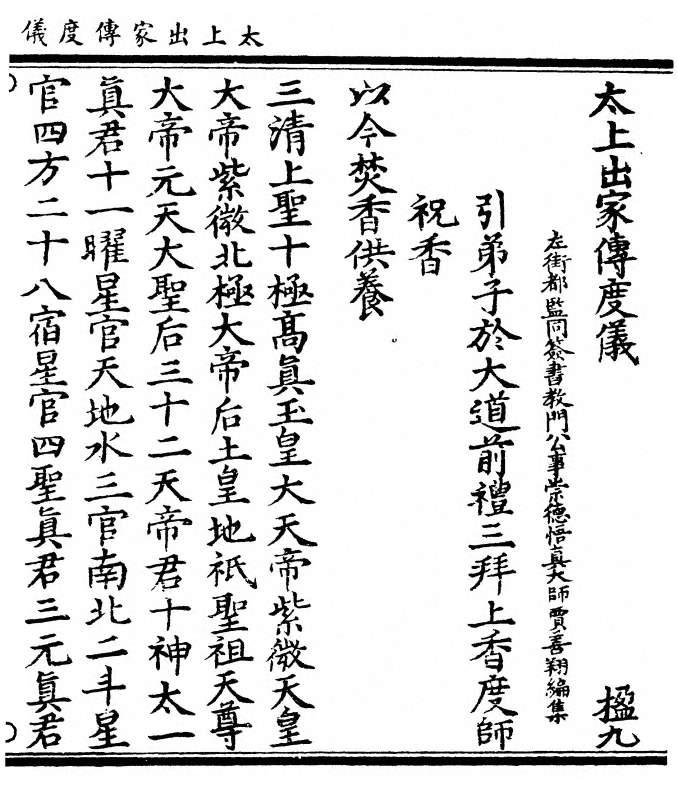 太上出家傳度儀
太上出家傳度儀 楹九
左街都監同簽書教門公事崇德悟真大師賈善翔編集
引弟子於大道前禮三拜上香度師
祝香
以今焚香供養
三清上聖十極髙真玉皇大天帝紫微天皇
大帝紫微北極大帝后土皇地祇聖祖天尊
大帝元天大聖后三十二天帝君十神太一
真君十一曜星官天地水三官南北二斗星
官四方二十八宿星官四聖真君三元真君